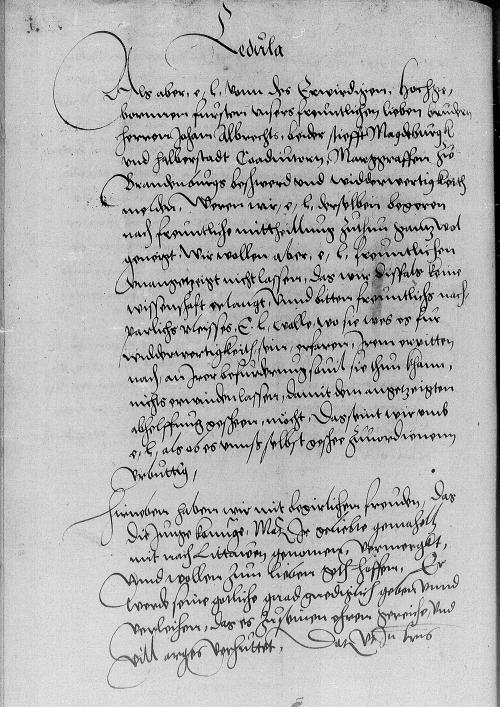 Cedula
Als aber, e, l, vonn des Erwirdigen, Hochge,
bornnen fursten unsers freuntlichen lieben brudern
herren Johan Albrechts, beider stiefft Magdeburgk
und halberstadt Coadiutorn, Marggraffen zu
Brandenburgs beschwerd und widderwertigkeith
melden, Weren wir, e, l, derselben begeren
nach freuntliche mittheillung zuthun gantz wol
geneigt Wir wollen aber, e, l, freuntlichen
unangezeigt nicht lassen, das wir disfals keine
wissenschafft erlangt, Unnd bitten freuntlichs nach,
parlichs vleisses, E, l, wolle, wo sie wes es fur
widderwertigkeith sein, erfaren, Irem erpitten
nach, an Irer befurderung souil sie thun khann,
nichts erwinden lassen, damit dem angezeigten
abhelffung gescheen, möcht, Das seint wir umb
e, l, als ob es unns selbst geschee zuuordienenn
urbuttig,
Hirneben haben wir mit begirlichen freuden, das
die Junge konige, Mat, Ire geliebte gemahell
mit nach Littawen genomen, vermerckt,
Unnd wollen zum lieben goth hoffen, Er
werde seine gotliche gnad gnediglich geben unnd
verleihen, das es zu seinen ehren gereiche, und
vill arges verhuttet, Dat Ut In lris